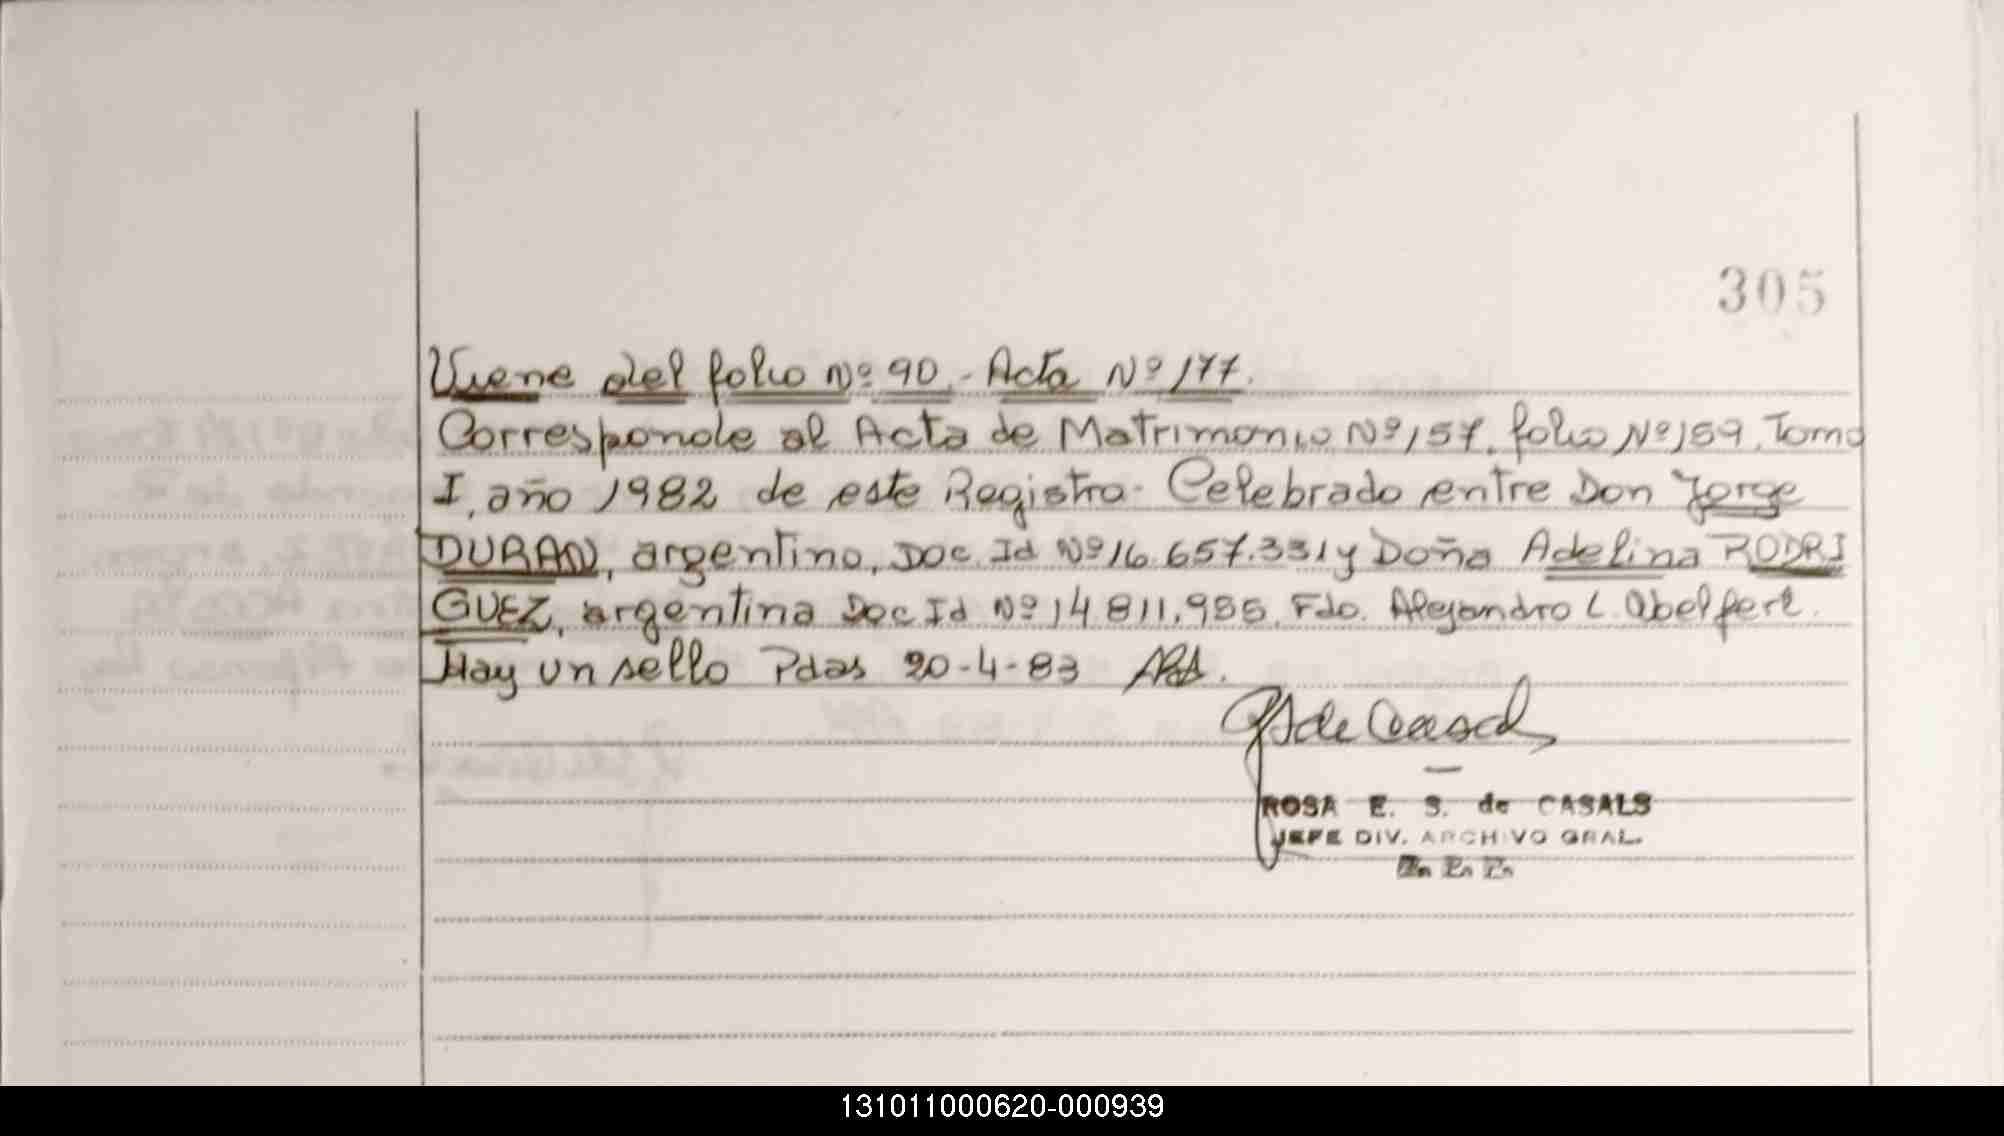 305
Viene del folio Nº 90.- Acta Nº 177.
Corresponde al Acta de Matrimonio Nº 157. folio Nº 159. Tomo
I, año 1982 de este Registro- Celebrado entre Don Jorge
DURAN, argentino, Doc. Id Nº 16.657.331 y Doña Adelina RODRI
GUEZ, argentina Doc Id Nº 14.811.955. Fdo. Alejandro L. Abelfert.
Hay un sello Pdas 20-4-83
de Casals
ROSA E. S. de CASALS
JEFE DIV. ARCHIVO GRAL.
131011000620-000939